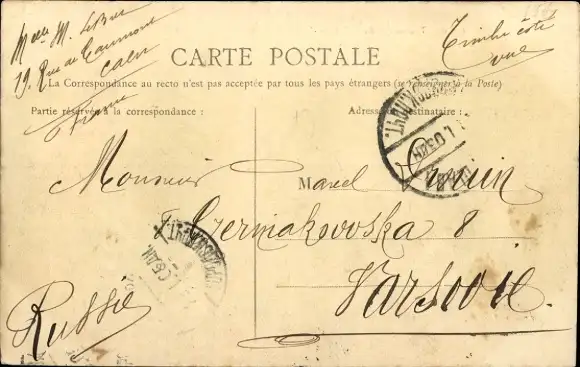 Melle M. LeBrec
19, Rue de Caumont
Caen
France
Timbre côté
vue
CARTE POSTALE
La Correspondance au recto n'est pas acceptée par tous les pays étrangers (se renseigner à la Poste)
Partie réservée à la correspondance :
Adresse du destinataire :
Monsieur Marcel
Czermakovoska 8
Varsovie
Russie